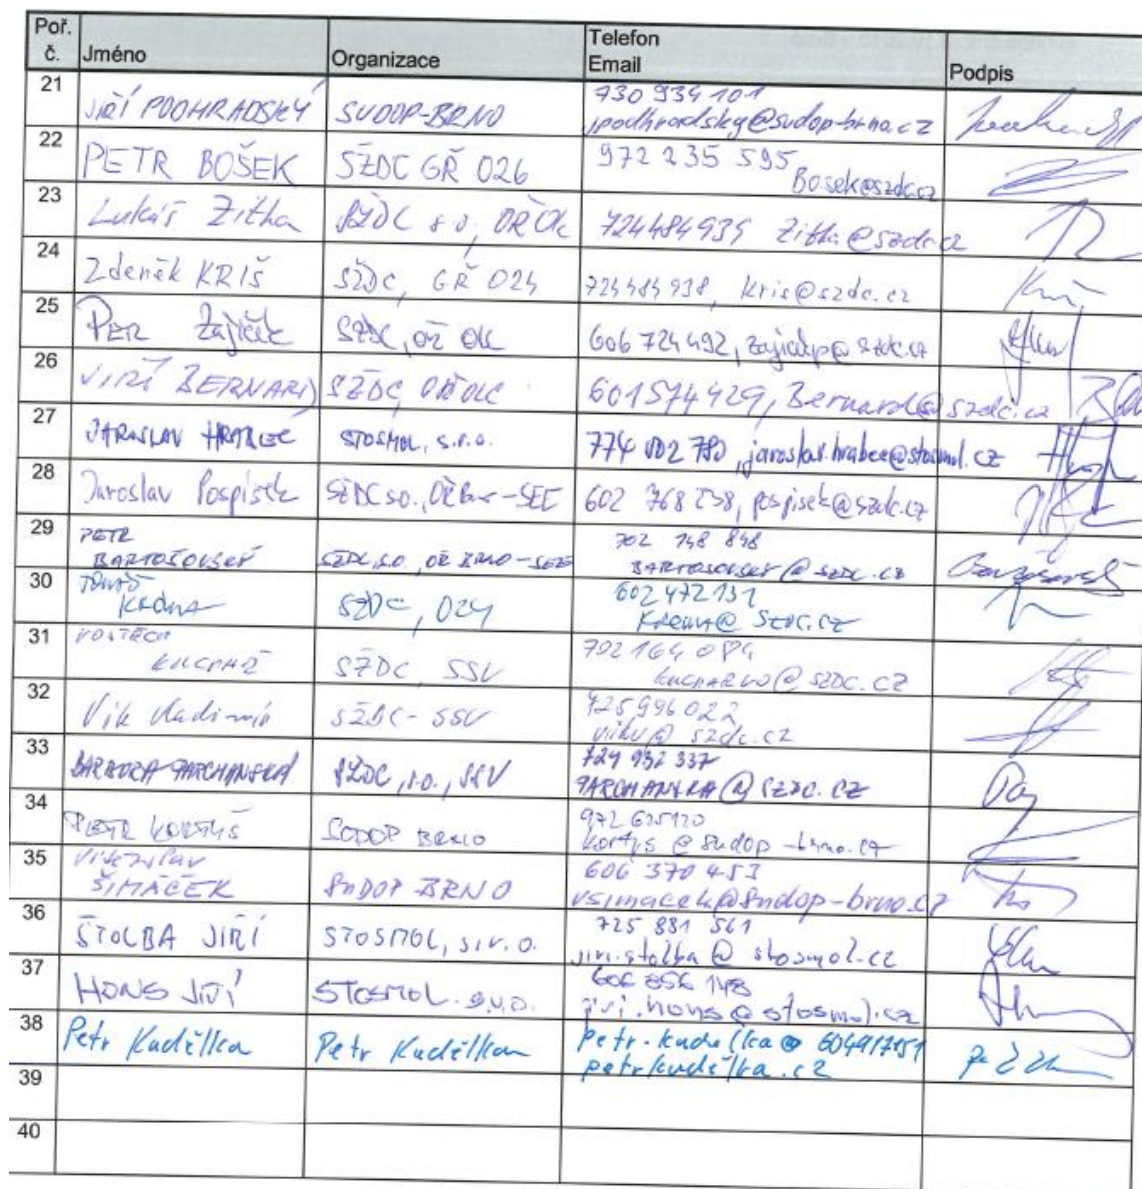 Poř. č. Jméno Organizace Telefon Email Podpis
21 JIŘÍ PODHRADSKÝ SUDOP-BRNO 730 934 101
jpodhradsky@sudop-brno.cz
22 PETR BOŠEK SŽDC GŘ 026 972 235 595
Bosek@szdc.cz
23 Lukáš Zitka SŽDC s.o., OŘ OLC 724484939 Zitka@szdc.cz
24 Zdeněk KRIŠ SŽDC, GŘ 024 724484938, kris@szdc.cz
25 Zajíček SŽDC, OŘ OLC 606 724 492, zajicekp@szdc.cz
26 JIŘÍ BERNARD SŽDC OŘ OLC 601574429, Bernard@szdc.cz
27 JAROSLAV HRABEC STOSMOL, s.r.o. 774 802 780, jaroslav.hrabec@stosmol.cz
28 Jaroslav Pospíšek SŽDC s.o., OŘ Brno-SEE 602 768 238, pospisek@szdc.cz
29 PETR
BARTOŠOVSKÝ SŽDC, s.o., OŘ BRNO-SEE 702 748 848
BARTOSOVSKY@SZDC.CZ
30 TOMÁŠ
SŽDC, 024 602 472 131
@szdc.cz
31 VOJTĚCH
KUCHAŘ SŽDC, SSV 702 164 084
KUCHARVO@SZDC.CZ
32 Vlk Vladimír SŽDC - SSV 725 996 022
vlkv@szdc.cz
33 BARBORA PARCHANSKÁ SŽDC, s.o., SSV 724 932 337
PARCHANSKA@SZDC.CZ
34 PETR KORTYŠ SUDOP BRNO 972 625 120
kortys@sudop-brno.cz
35 Vítězslav
ŠIMÁČEK SUDOP BRNO 606 370 453
vsimacek@sudop-brno.cz
36 ŠTOLBA JIŘÍ STOSMOL, s.r.o. 725 881 561
jiri.stolba@stosmol.cz
37 HONS JIŘÍ STOSMOL s.r.o. 606 856 148
jiri.hons@stosmol.cz
38 Petr Kudělka Petr Kudělka petr.kudelka@ 604917151
petrkudelka.cz
39
40